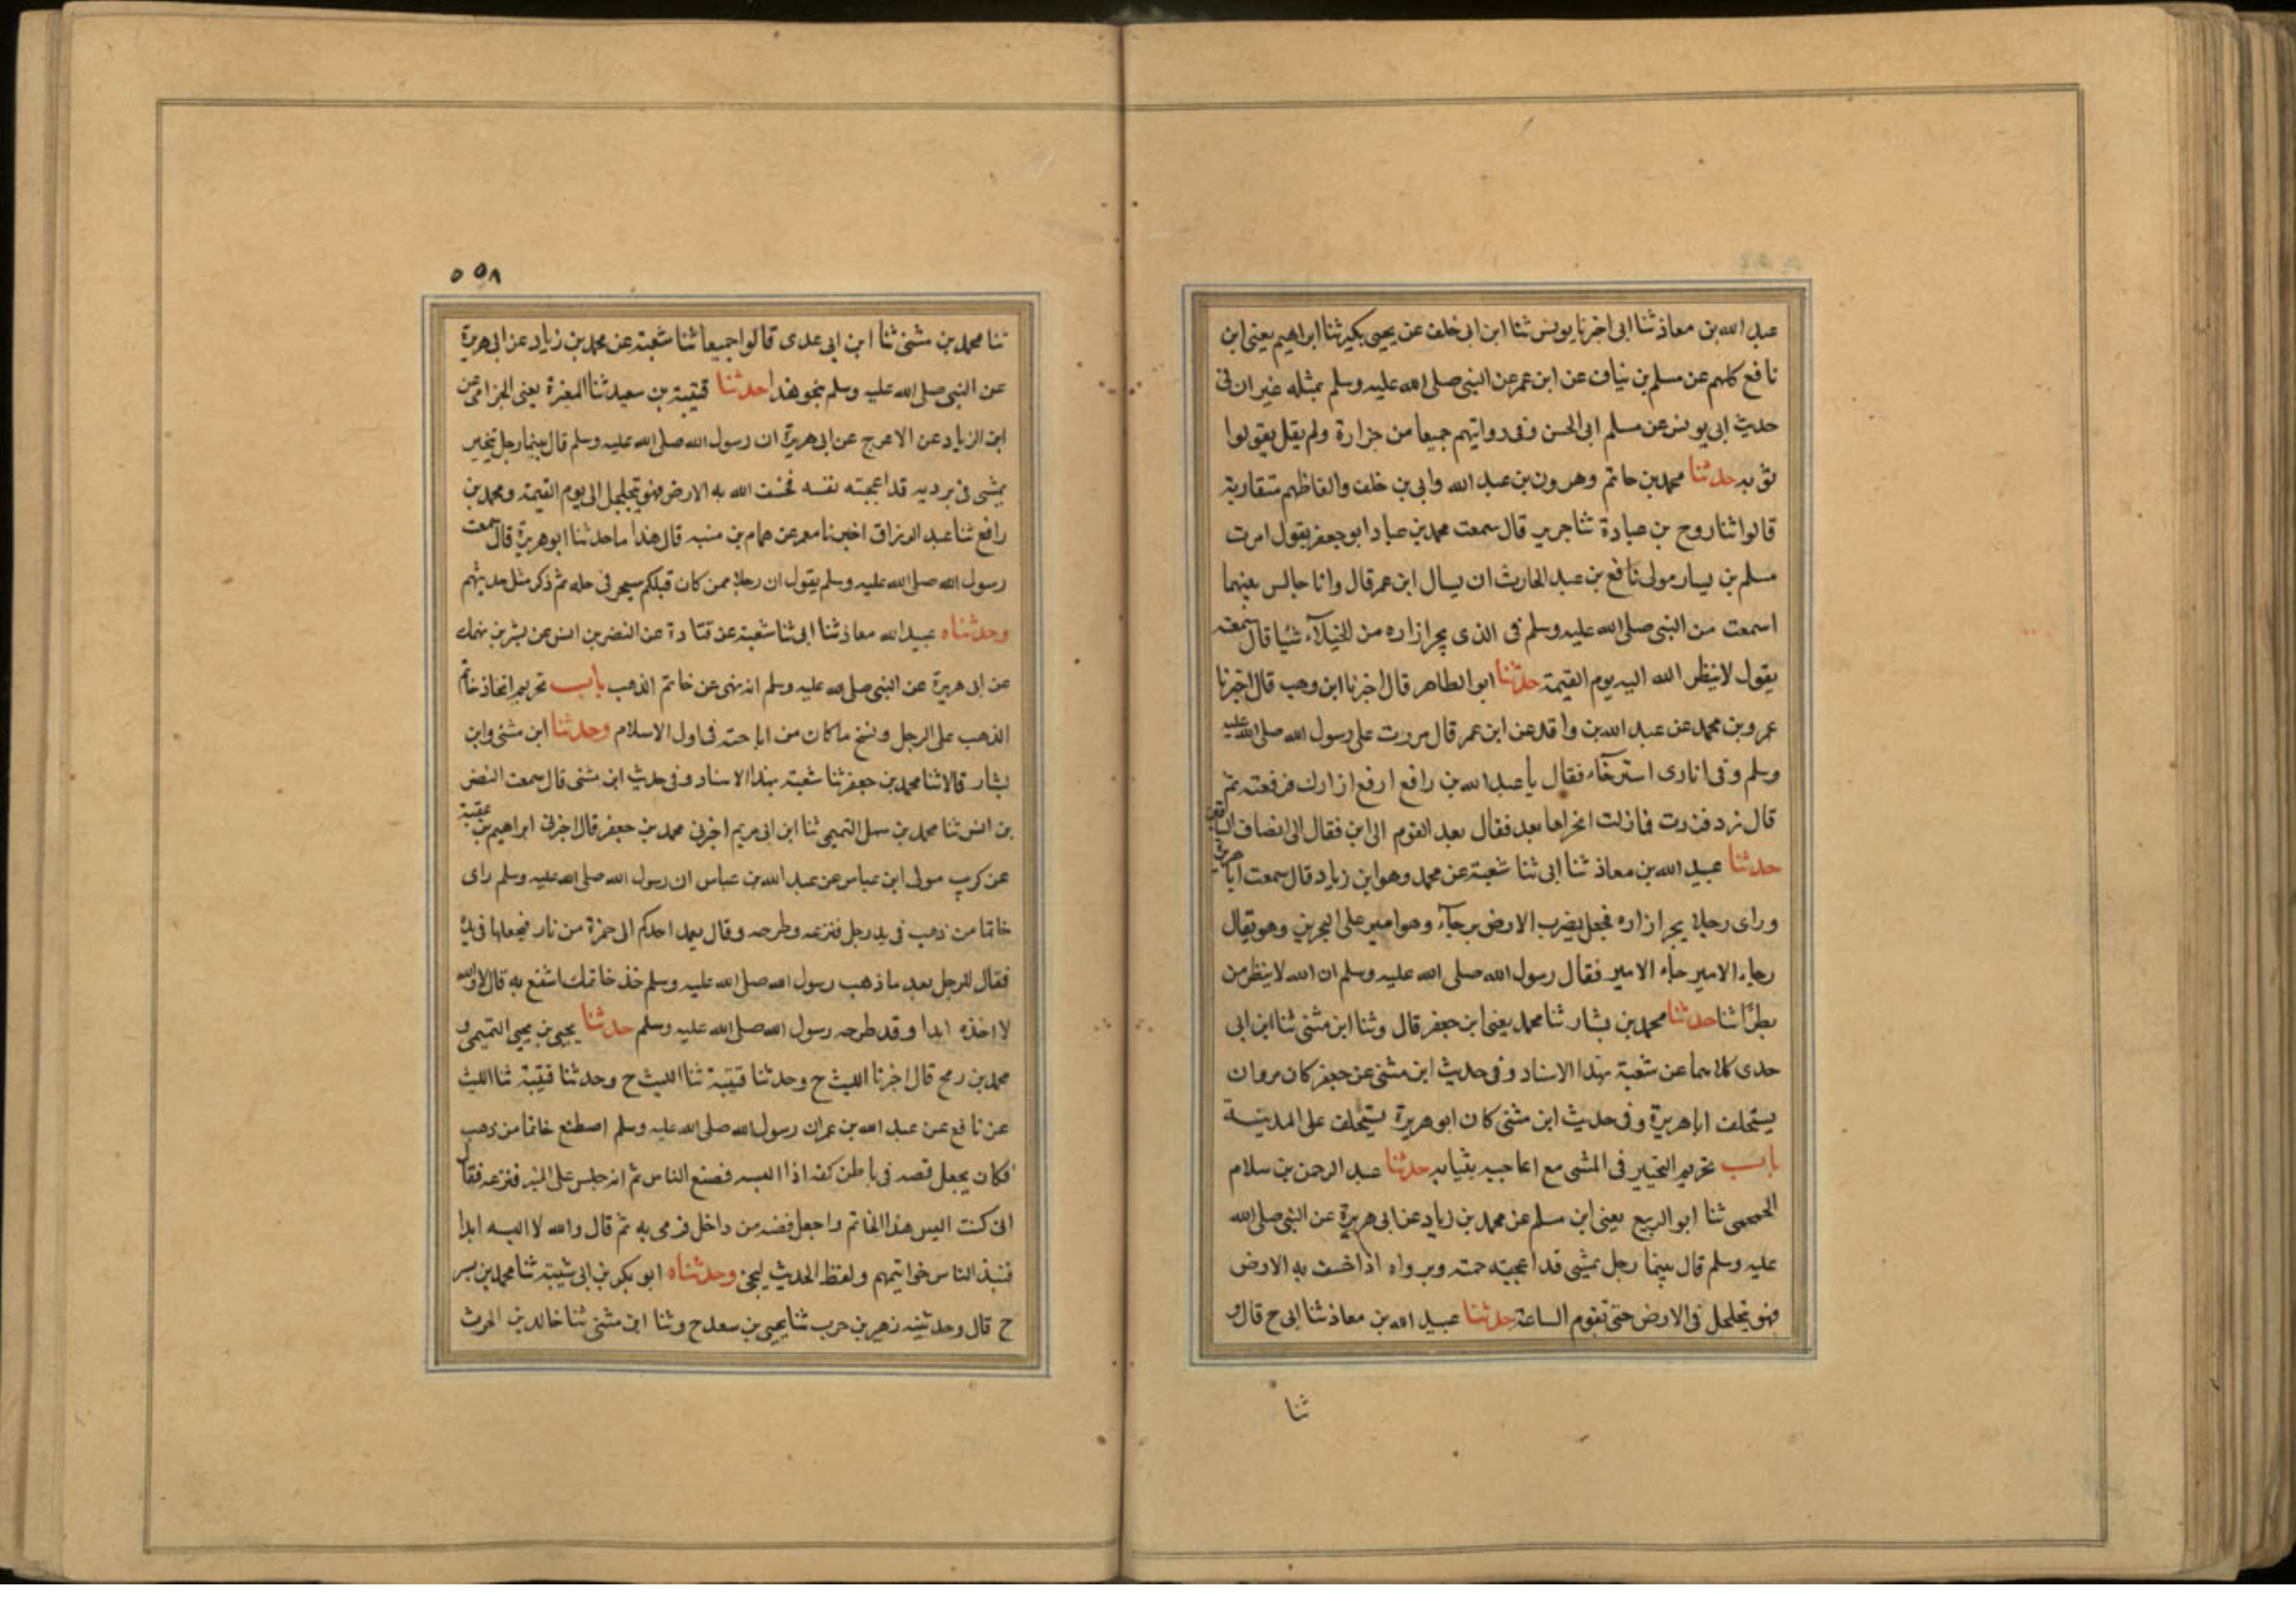 عبد الله بن معاذ ثنا ابى اخبرنا يونس ثنا ابن ابى خلف عن يحيى بكير ثنا ابراهيم يعنى ابن
نافع كلهم عن مسلم بن نياف عن ابن عمر عن النبى صلى الله عليه وسلم بمثله غير ان فى
حديث ابى يونس عن مسلم ابى الحسن وفى روايتهم جميعا من جر ازاره ولم يقل يقولوا
ثوبه حدثنا محمد بن حاتم وهرون بن عبد الله وابى بن خلف والفاظهم متقاربة
قالوا ثنا روح بن عبادة ثنا جرير قال سمعت محمد بن عباد ابو جعفر يقول امرت
مسلم بن يسار مولى نافع بن عبد الحارث ان يسال ابن عمر قال وانا جالس بينهما
اسمعت من النبى صلى الله عليه وسلم فى الذى يجر ازاره من الخيلآء شيا قال سمعته
يقول لا ينظر الله اليه يوم القيمة حدثنا ابو الطاهر قال اخبرنا ابن وهب قال اخبرنا
عمرو بن محمد عن عبد الله بن واقد عن ابن عمر قال مررت على رسول الله صلى الله عليه
وسلم وفى ازارى استرخآء فقال يا عبد الله بن رافع ارفع ازارك فرفعته ثم
قال زد فزدت فما زلت اتحراها بعد فقال بعد القوم الى اين فقال الى انصاف الساقين
حدثنا عبيد الله بن معاذ ثنا ابى ثنا شعبة عن محمد وهو ابن زياد قال سمعت ابا هريرة
وراى رجلا يجر ازاره فجعل يضرب الارض برجله وهو امير على البحرين وهو يقال
جاء الامير جاء الامير فقال رسول الله صلى الله عليه وسلم ان الله لا ينظر من
بطرًا ثنا حدثنا محمد بن بشار ثنا محمد يعنى ابن جعفر قال وثنا ابن مثنى ثنا ابن ابى
عدى كلاهما عن شعبة بهذا الاسناد وفى حديث ابن مثنى عن جعفر كان مروان
يستخلف اباهريرة وفى حديث ابن مثنى كان ابو هريرة يستخلف على المدينة
باب تحريم التخير فى المشى مع اعاجيبه بثيابه حدثنا عبد الرحمن بن سلام
الجمحى ثنا ابو الربيع يعنى ابن مسلم عن محمد بن زياد عن ابى هريرة عن النبى صلى الله
عليه وسلم قال بينما رجل يمشى قد اعجبته جمته وبرداه اذ اخسف به الارض
فهو يتجلجل فى الارض حتى تقوم الساعة حدثنا عبيد الله بن معاذ ثنا ابى ح قال و
ثنا
٥٥٨
ثنا محمد بن مثنى ثنا ابن ابى عدى قالوا جميعا ثنا شعبة عن محمد بن زياد عن ابى هريرة
عن النبى صلى الله عليه وسلم بنحو هذا حدثنا قتيبة بن سعيد ثنا المغيرة يعنى الحزامى عن
ابى الزياد عن الاعرج عن ابى هريرة ان رسول الله صلى الله عليه وسلم قال بينما رجل يتخير
يمشى فى برديه قد اعجبته نفسه فخسف الله به الارض فهو يتجلجل الى يوم القيمة ومحمد بن
رافع ثنا عبد الرزاق اخبرنا معمر عن همام بن منبه قال هذا ما حدثنا ابو هريرة قال سمعت
رسول الله صلى الله عليه وسلم يقول ان رجلا ممن كان قبلكم يتبختر فى حله ثم ذكر مثل حديثهم
وحدثناه عبيد الله معاذ ثنا ابى ثنا شعبة عن قتادة عن النضر بن انس عن بشر بن نهيك
عن ابى هريرة عن النبى صلى الله عليه وسلم انه نهى عن خاتم الذهب باب تحريم اتخاذ خاتم
الذهب على الرجل ونسخ ما كان من اباحته فى اول الاسلام وحدثنا ابن مثنى وابن
بشار قالا ثنا محمد بن جعفر ثنا شعبة بهذا الاسناد وفى حديث ابن مثنى قال سمعت النضر
بن انس ثنا محمد بن سهل التميمى ثنا ابن ابى مريم اخبرنى محمد بن جعفر قال اخبرنى ابراهيم بن عقبة
عن كريب مولى ابن عباس عن عبد الله بن عباس ان رسول الله صلى الله عليه وسلم راى
خاتما من ذهب فى يد رجل فنزعه وطرحه وقال يعمد احدكم الى جمرة من نار فيجعلها فى يده
فقال للرجل بعد ما ذهب رسول الله صلى الله عليه وسلم خذ خاتمك انتفع به قال لا والله
لا اخذه ابدا وقد طرحه رسول الله صلى الله عليه وسلم حدثنا يحيى بن يحيى التميمى و
محمد بن رمح قال اخبرنا الليث ح وحدثنا قتيبة ثنا الليث ح وحدثنا قتيبة ثنا الليث
عن نافع عن عبد الله بن عمر ان رسول الله صلى الله عليه وسلم اصطنع خاتما من ذهب
فكان يجعل فصه فى باطن كفه اذا لبسه فصنع الناس ثم انه جلس على المنبر فنزعه فقال
انى كنت البس هذا الخاتم واجعل فصه من داخل فرمى به ثم قال والله لا البسه ابدا
فنبذ الناس خواتيمهم ولفظ الحديث ليحيى وحدثناه ابو بكر بن ابى شيبة ثنا محمد بن بسر
ح قال وحدثنيه زهير بن حرب ثنا يحيى بن سعد ح وثنا ابن مثنى ثنا خالد بن الحرث